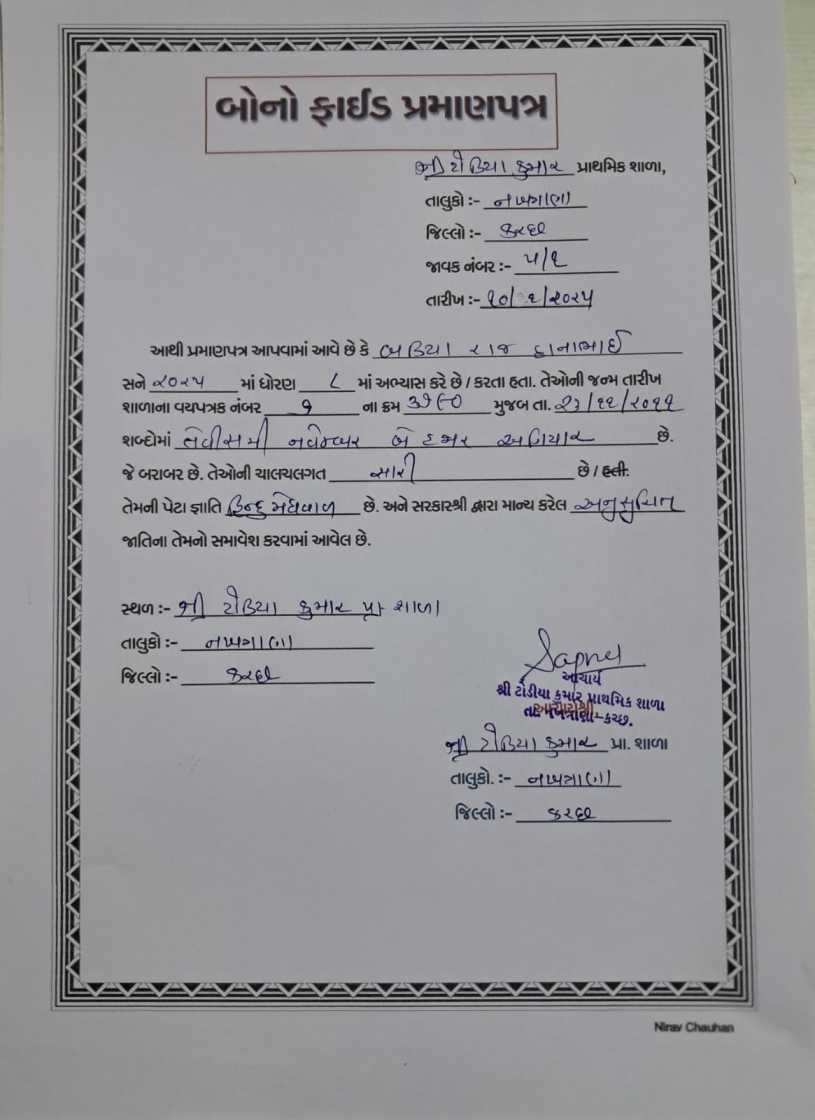 બોનો ફાઈડ પ્રમાણપત્ર
શ્રી ટોડિયા કુમાર પ્રાથમિક શાળા,
તાલુકો :- નખત્રાણા
જિલ્લો :- કચ્છ
જાવક નંબર :- ૫/૨
તારીખ :- ૧૦/ ૨/૨૦૨૫
આથી પ્રમાણપત્ર આપવામાં આવે છે કે બડિયા રાજ કાનાભાઈ
સને ૨૦૨૫ માં ધોરણ ૮ માં અભ્યાસ કરે છે / કરતા હતા. તેઓની જન્મ તારીખ
શાળાના વયપત્રક નંબર ૧ ના ક્રમ મુજબ તા. ૨૩/૧૧/૨૦૧૧
શબ્દોમાં ત્રેવીસમી નવેમ્બર બે હજાર અગિયાર છે.
જે બરાબર છે. તેઓની ચાલચલગત સારી છે / હતી.
તેમની પેટા જ્ઞાતિ હિન્દુ મેઘવાળ છે. અને સરકારશ્રી દ્વારા માન્ય કરેલ અનુસુચિત
જાતિના તેમનો સમાવેશ કરવામાં આવેલ છે.
સ્થળ :- શ્રી ટોડિયા કુમાર પ્રા શાળા
તાલુકો :- નખત્રાણા
જિલ્લો :- કચ્છ
Sapna
આચાર્ય
શ્રી ટોડીયા કુમાર પ્રાથમિક શાળા
તા. નખત્રાણા-કચ્છ.
આચાર્યશ્રી
શ્રી ટોડિયા કુમાર પ્રા. શાળા
તાલુકો. :- નખત્રાણા
જિલ્લો :- કચ્છ
Nirav Chauhan